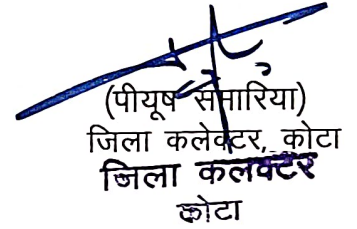 (पीयूष समारिया)
जिला कलेक्टर, कोटा
जिला कलक्टर
कोटा